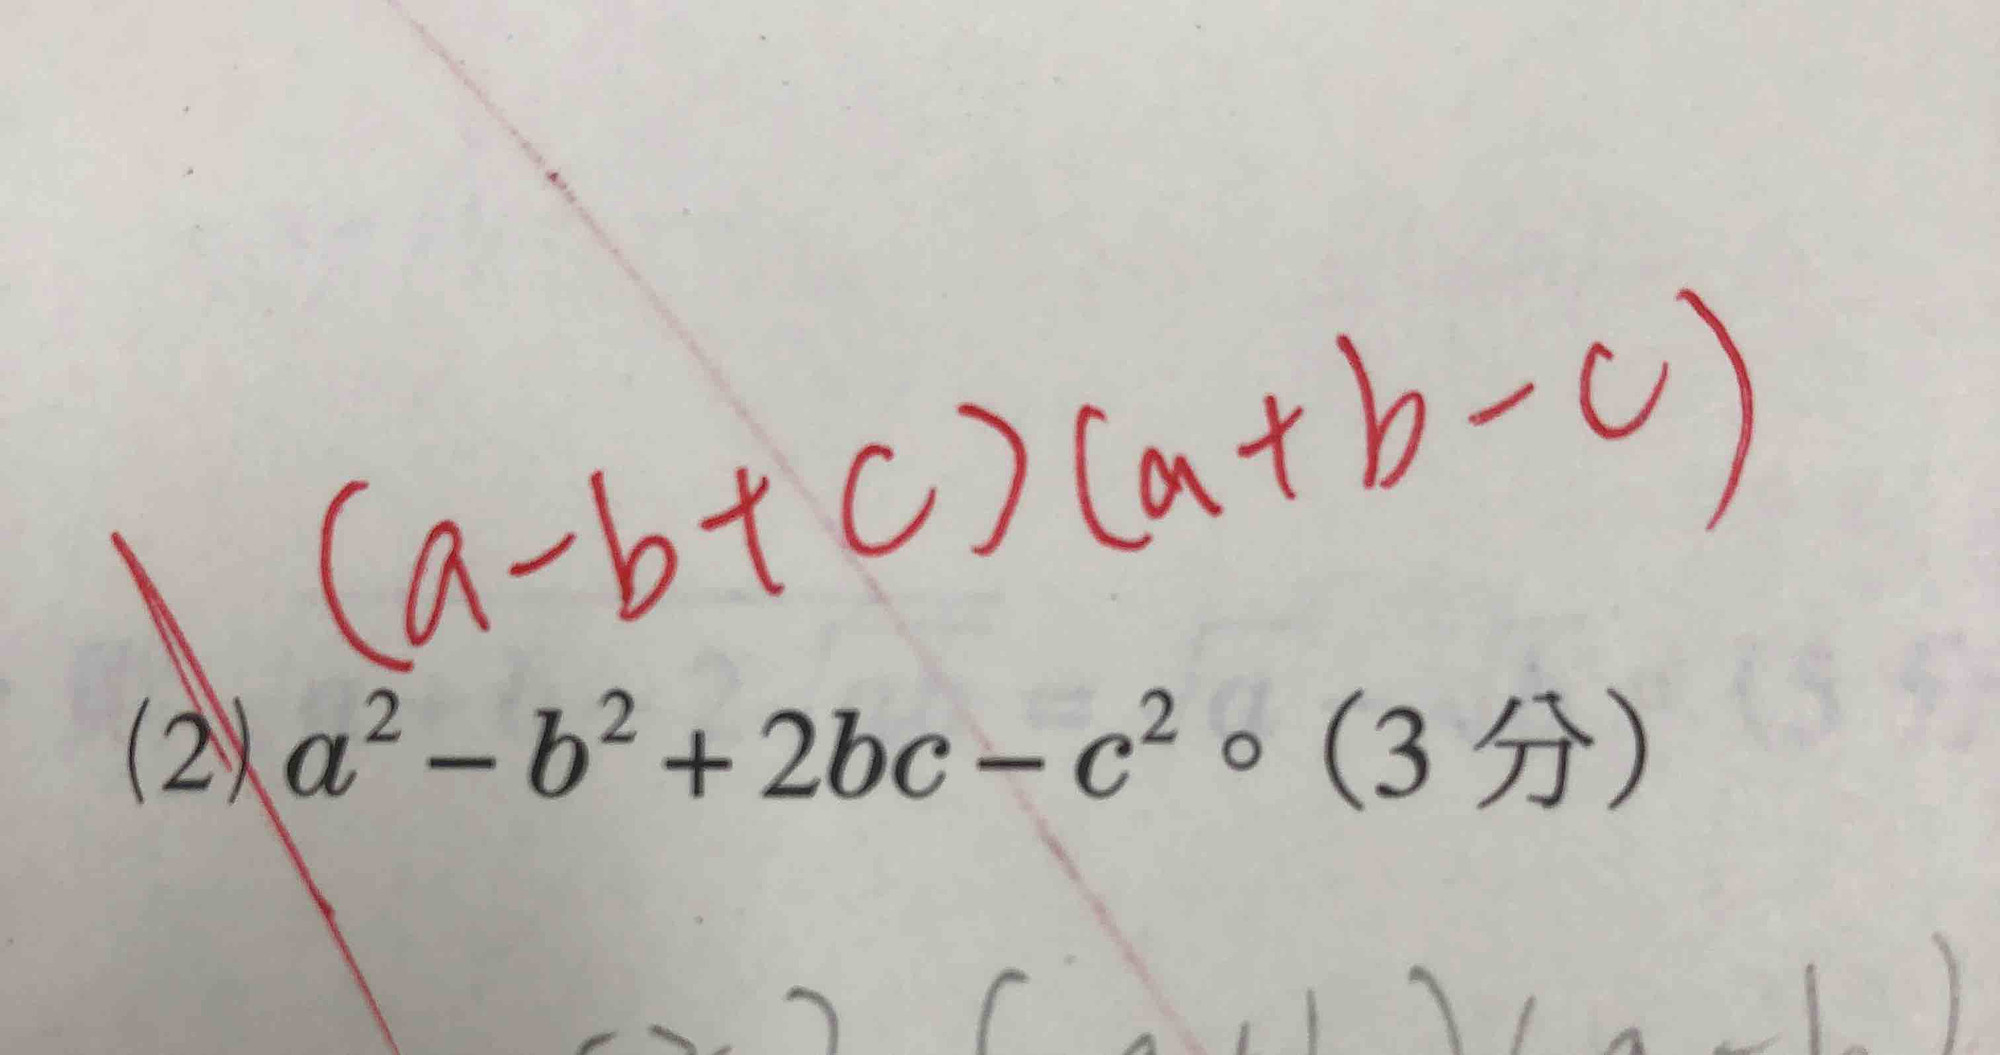 (a-b+c)(a+b-c)
(2) a² - b² + 2bc - c²。(3 分)